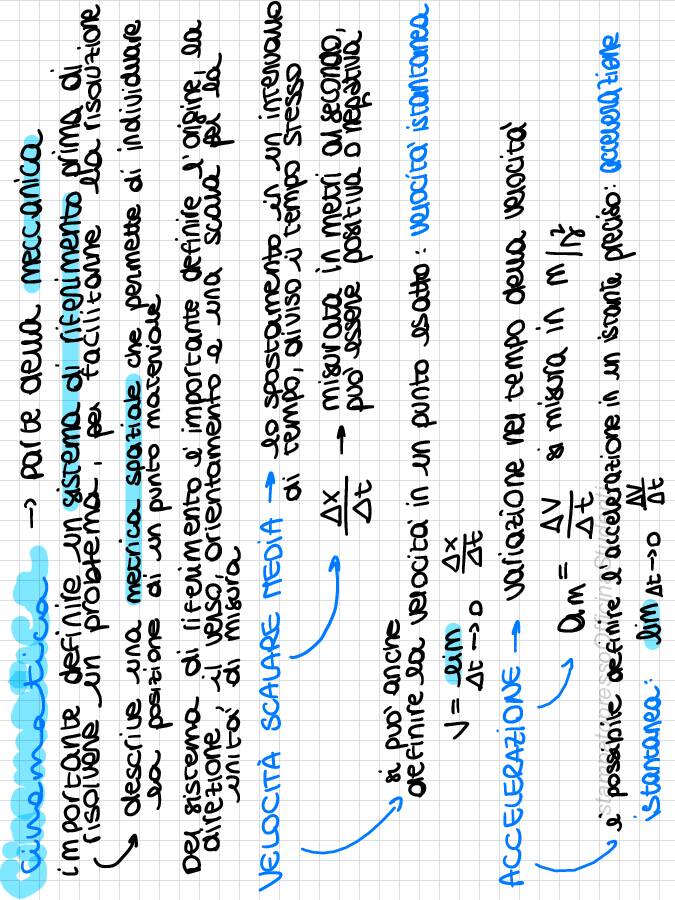 cinematica → parte della meccanica
importante definire un sistema di riferimento prima di
risolvere un problema, per facilitarne la risoluzione
descrive una metrica spaziale che permette di individuare
la posizione di un punto materiale
Del sistema di riferimento è importante definire l'origine, la
direzione, il verso, orientamento e una scala per la
unità di misura
VELOCITÀ SCALARE MEDIA → lo spostamento in un intervallo
di tempo, diviso il tempo stesso
Δx/Δt → misurata in metri al secondo,
può essere positiva o negativa
si può anche
definire la velocità in un punto esatto: velocità istantanea
V = lim Δt→0 Δx/Δt
ACCELERAZIONE → variazione nel tempo della velocità
am = ΔV/Δt si misura in m/s²
è possibile definire l'accelerazione in un istante preciso: accelerazione
istantanea: lim Δt→0 ΔV/Δt